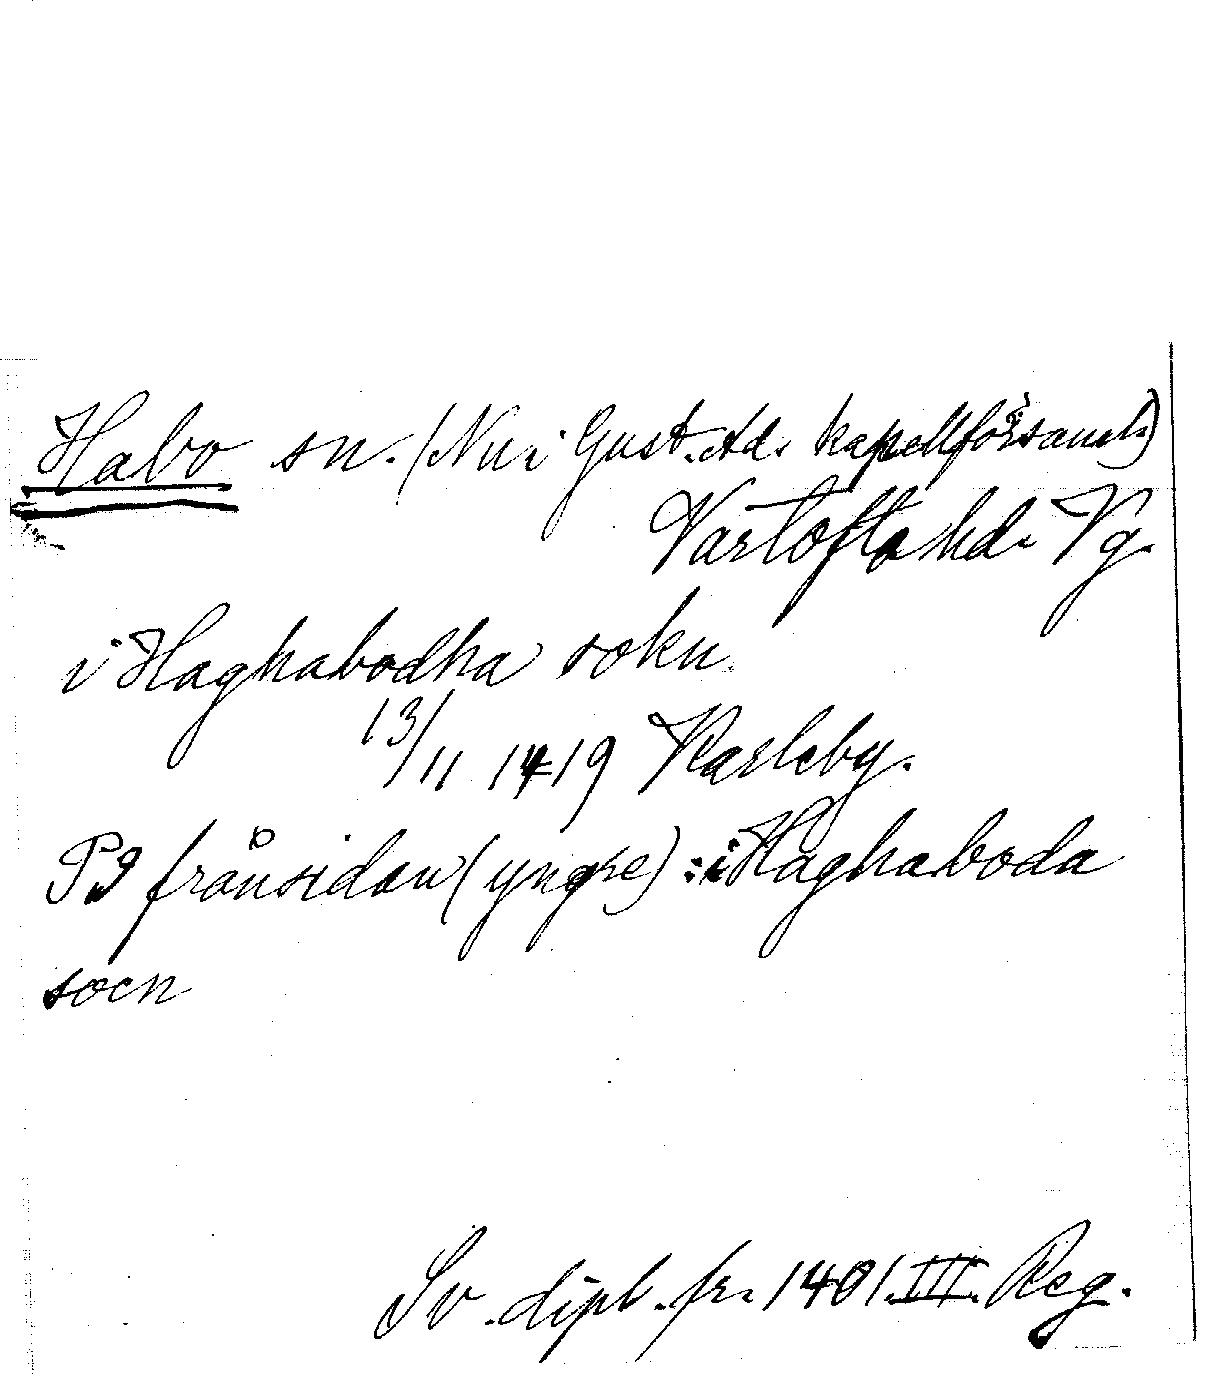 Habo sn. (Nu i Gust. Ad. kapellförsaml.)
Vartofta hd. Vg.
i Haghabodha sokn.
13/11 1419 Karleby.
På frånsidan (yngre) : i Haghaboda
socn
Sv. dipl. fr. 1401. III. Reg.